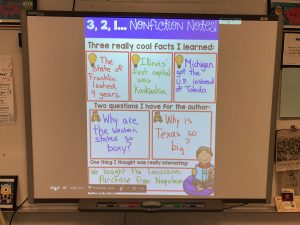 3, 2, 1... NONFICTION NOTES!
Three really cool facts I learned:
The
State of
Franklin
lasted
4 years.
Illinois'
first capital
was
Kaskaskia
Michigan
got the
U.P. instead
of Toledo
Two questions I have for the author:
Why are
the western
states so
boxy?
Why is
Texas so
big?
One thing I thought was really interesting:
We bought the Louisiana
Purchase from Napoleon